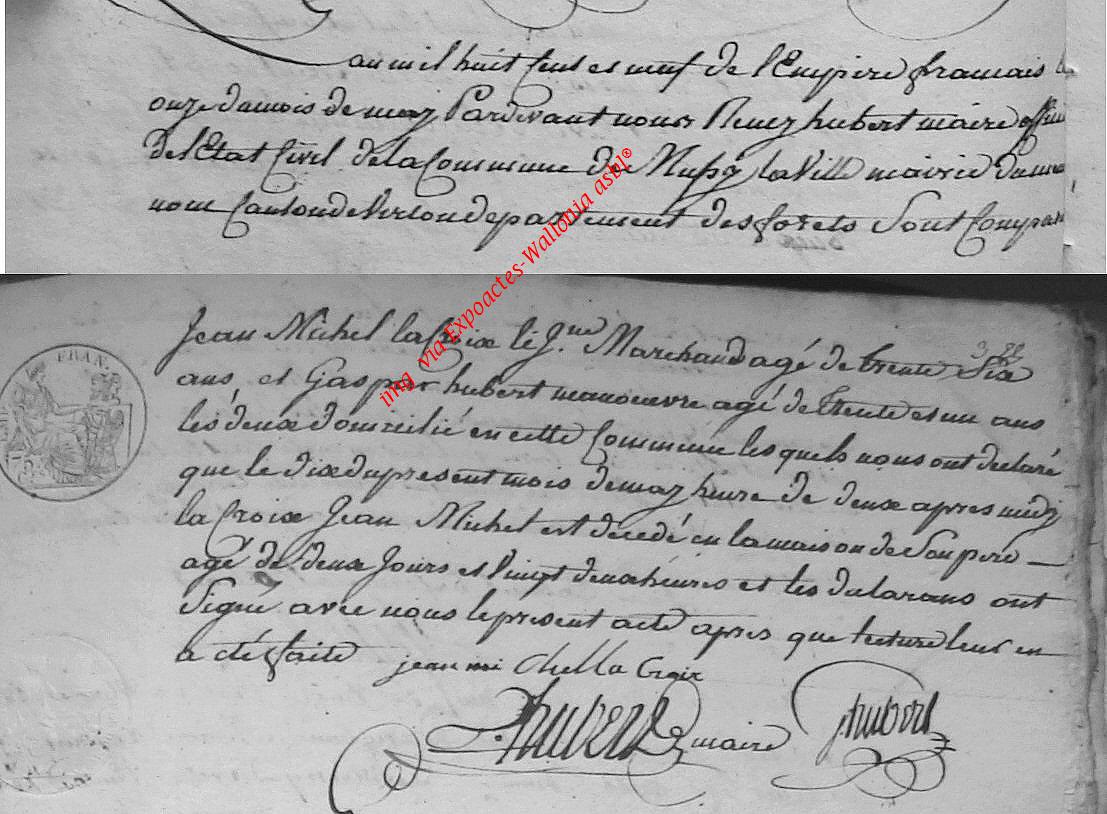 au mil huit cent et neuf de l'Empire framais
onze du mois de may Pardevant nous Remez hubert maire
de l'Etat Civil de la Commune de Mussy la Ville mairie du
nom Canton de Virton departement des forets Sont Compar
Jean Michel la Croix le Jne Marchand agé de trente Six
ans et Gaspar hubert manoeuvre agé de trente et un ans
les deux domicilié en cette Commune les quels nous ont declaré
que le dix du present mois de may heure de deux apres midy
la Croix Jean Michel est decedé en la maison de Son pere
agé de deux Jours et Vingt deux heures et les delarans ont
Signé avec nous le present acte apres que lecture leur en
a eté faite jean mi Chel la Croix
hubert maire hubert
FRAN
img via Expoactes-Wallonia asbl®